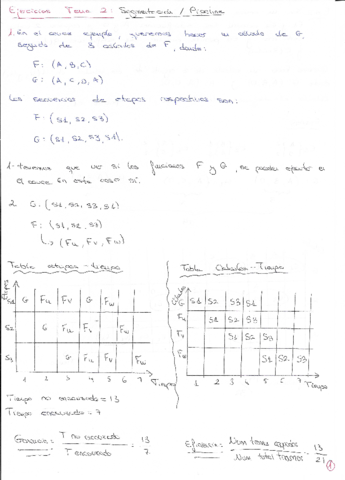 Ejercicios Tema 2: Segmentación / Pipeline
1. En el cauce ejemplo, queremos hacer un cálculo de G,
seguido de 3 cálculos de F, donde:
F: (A, B, C)
G: (A, C, D, A)
Las secuencias de etapas respectivas son:
F: (S1, S2, S3)
G: (S1, S2, S3, S1).
1. Tenemos que ver si las funciones F y G, se puede
el cauce. En este caso sí.
2. G: (S1, S2, S3, S1)
F: (S1, S2, S3)
↳ (Fu, Fv, Fw)
Tabla etapas-tiempo
Tabla Cálculos-Tiempo
Etapas
S1 G Fu Fv G Fw
S2 G Fu Fv Fw
S3 G Fu Fv Fw
1 2 3 4 5 6 7 Tiempo
Cálculos
G S1 S2 S3 S1
Fu S1 S2 S3
Fv S1 S2 S3
Fw S1 S2 S3
1 2 3 4 5 6 7 Tiempo
Tiempo no encauzado = 13
Tiempo encauzado = 7
Ganancia: T no encauzado / T encauzado = 13 / 7
Eficiencia: Num tramos ocupados / Num total tramos = 13 / 21
1